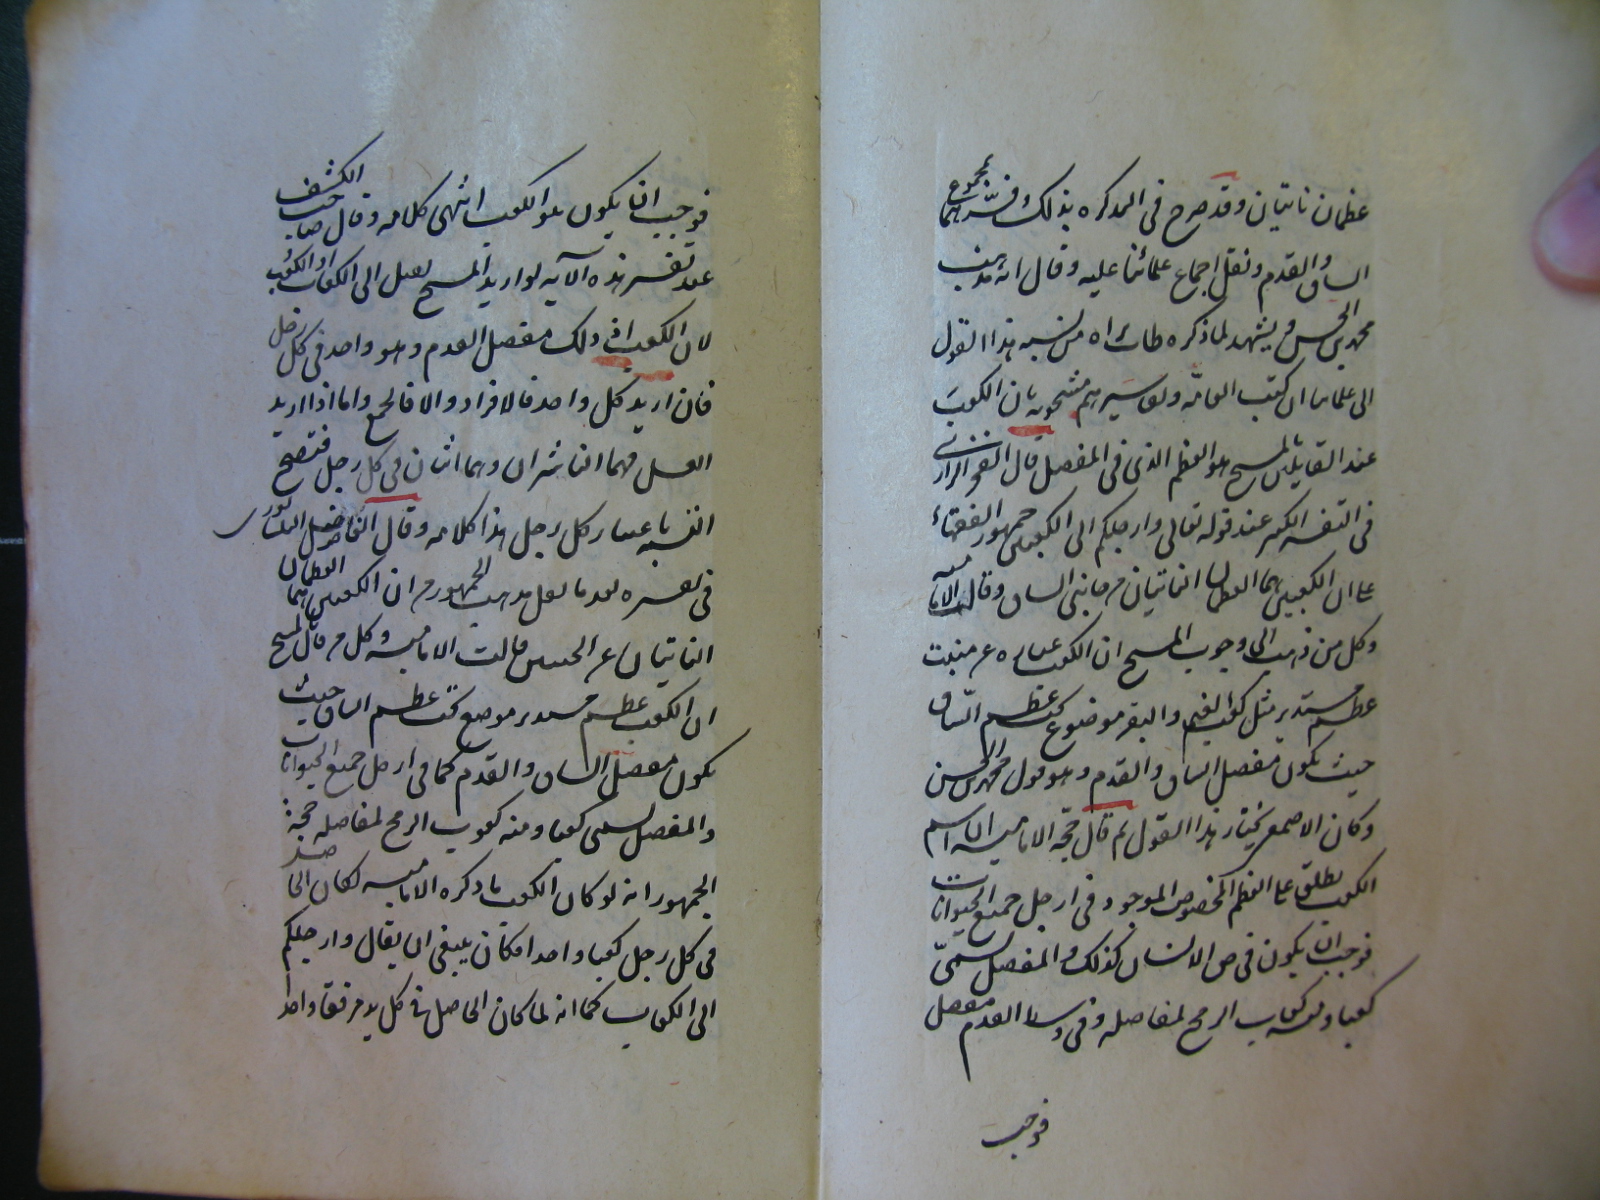 عظمان ناتيان وقد صرح فى التذكره بذلك وفسرهما بمجموع
الساق والقدم ونقل اجماع علمائنا عليه وقال انه مذهب
محمد بن الحسن ويشهد لما ذكره طاب ثراه من نسبه هذا القول
الى علمائنا ان كتب العامّه وتفاسيرهم مشحونه بان الكعب
عند القايلين بالمسح هو العظم الذى فى المفصل قال الفخر الرازى
فى التفسير الكبير عند قوله تعالى وارجلكم الى الكعبين جمهور الفقهاء
على ان الكعبين هما العظمان الناتيان من جانبى الساق وقالت الاماميه
وكل من ذهب الى وجوب المسح ان الكعب عباره عن
عظم مستدير مثل كعب الغنم والبقر موضوع تحت عظم السّاق
حيث يكون مفصل الساق والقدم وهو قول محمد بن الحسن
وكان الاصمعى يختار هذا القول ثم قال حجّه الاماميه ان اسم
الكعب يطلق على العظم المخصوص الموجود فى ارجل جميع الحيوانات
فوجب ان يكون فى حق الانسان كذلك والمفصل يسمّى
كعبا ومنه كعاب الرمح لمفاصله وفى وسط القدم مفصل
فوجب
فوجب ان يكون هو الكعب انتهى كلامه وقال صاحب الكشف
عند تفسير هذه الآيه لو اريد المسح لقيل الى الكعاب او الكعب
لان الكعب اذ ذلك مفصل القدم وهو واحد فى كل رجل
فان اريد كل واحد فالافراد والا فالجمع واما اذا اريد
الغسل فهما الناشزان وهما اثنان فى كل رجل فتصح
التثنيه باعتبار كل رجل هذا كلامه وقال الفاضل النيسابورى
فى تفسيره بعد ما نقل مذهب الجمهور من ان الكعبين هما العظمان
الناتيان عن الجنبين قالت الاماميه وكل من قال بالمسح
ان الكعب عظم مستدير موضع تحت عظم الساق حيث
يكون مفصل الساق والقدم كما فى ارجل جميع الحيوانات
والمفصل يسمى كعبا ومنه كعوب الرمح لمفاصله حجة
الجمهور انه لو كان الكعب ما ذكره الاماميه لكان الحاصل
فى كل رجل كعبا واحدا فكان ينبغى ان يقال وارجلكم
الى الكعاب كما انه لما كان الحاصل فى كل يد مرفقا واحدا